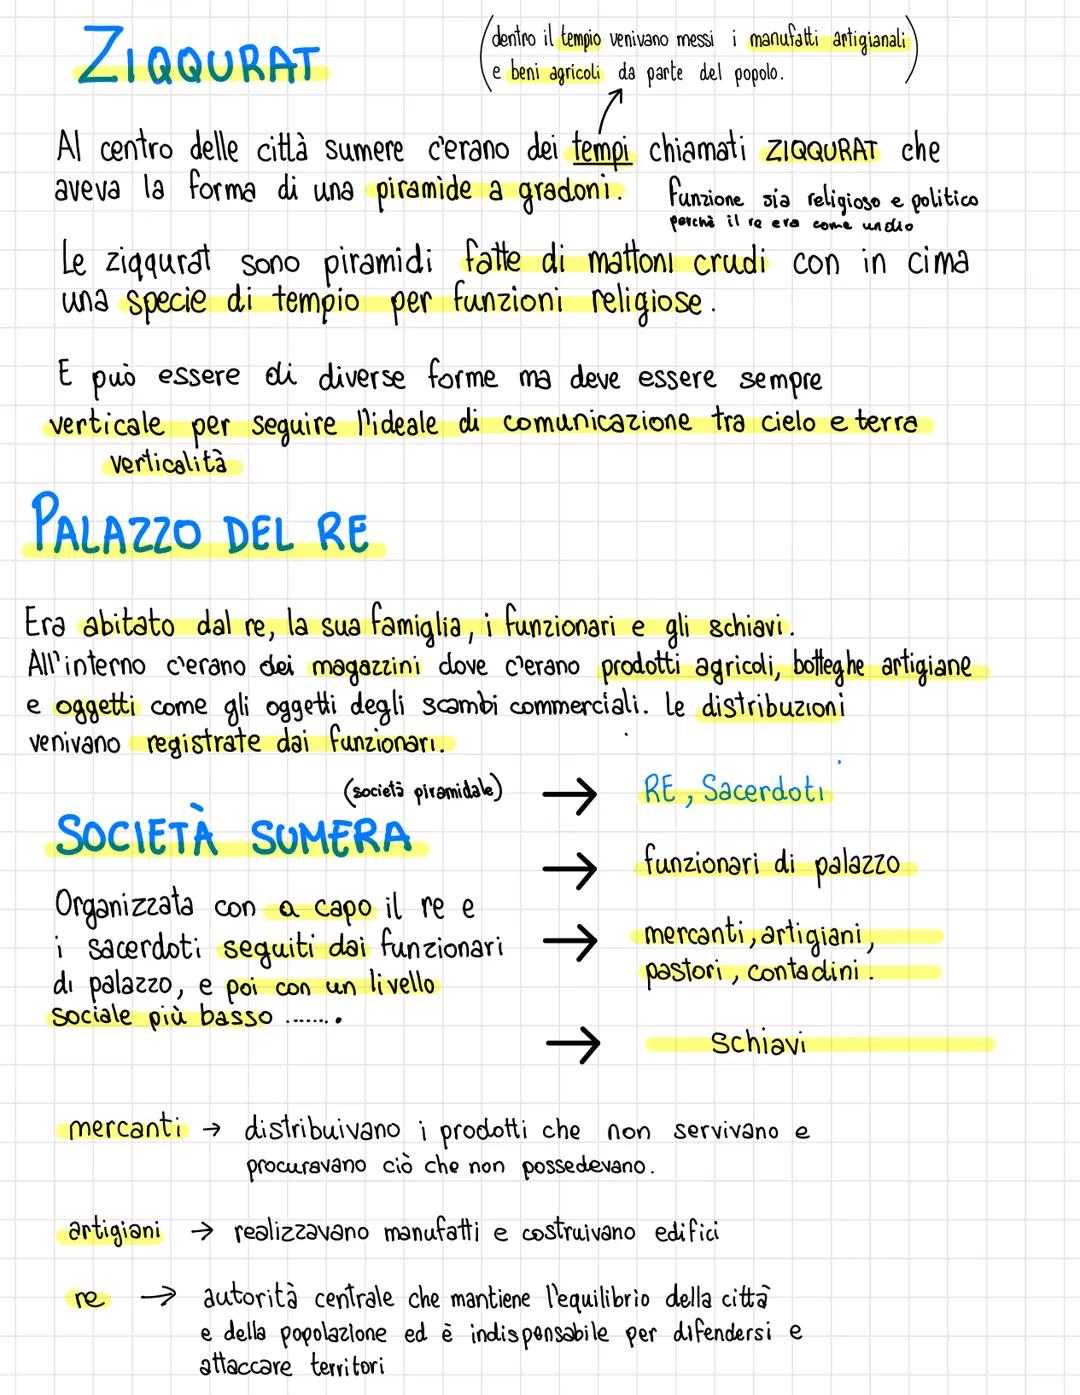 ZIQQURAT
(dentro il tempio venivano messi i manufatti artigianali
e beni agricoli da parte del popolo.)
Al centro delle città sumere c'erano dei tempi chiamati ZIQQURAT che
aveva la forma di una piramide a gradoni.
funzione sia religioso e politico
perchè il re era come un dio
Le ziqqurat sono piramidi fatte di mattoni crudi con in cima
una specie di tempio per funzioni religiose.
E può essere di diverse forme ma deve essere sempre
verticale per seguire l'ideale di comunicazione tra cielo e terra
verticalità
PALAZZO DEL RE
Era abitato dal re, la sua famiglia, i funzionari e gli schiavi.
All'interno c'erano dei magazzini dove c'erano prodotti agricoli, botteghe artigiane
e oggetti come gli oggetti degli scambi commerciali. Le distribuzioni
venivano registrate dai funzionari.
(società piramidale)
SOCIETÀ SUMERA
Organizzata con a capo il re e
i sacerdoti seguiti dai funzionari
di palazzo, e poi con un livello
sociale più basso ........
→ RE, Sacerdoti
→ funzionari di palazzo
→ mercanti, artigiani,
pastori, contadini.
→ Schiavi
mercanti → distribuivano i prodotti che non servivano e
procuravano ciò che non possedevano.
artigiani → realizzavano manufatti e costruivano edifici
re → autorità centrale che mantiene l'equilibrio della città
e della popolazione ed è indispensabile per difendersi e
attaccare territori